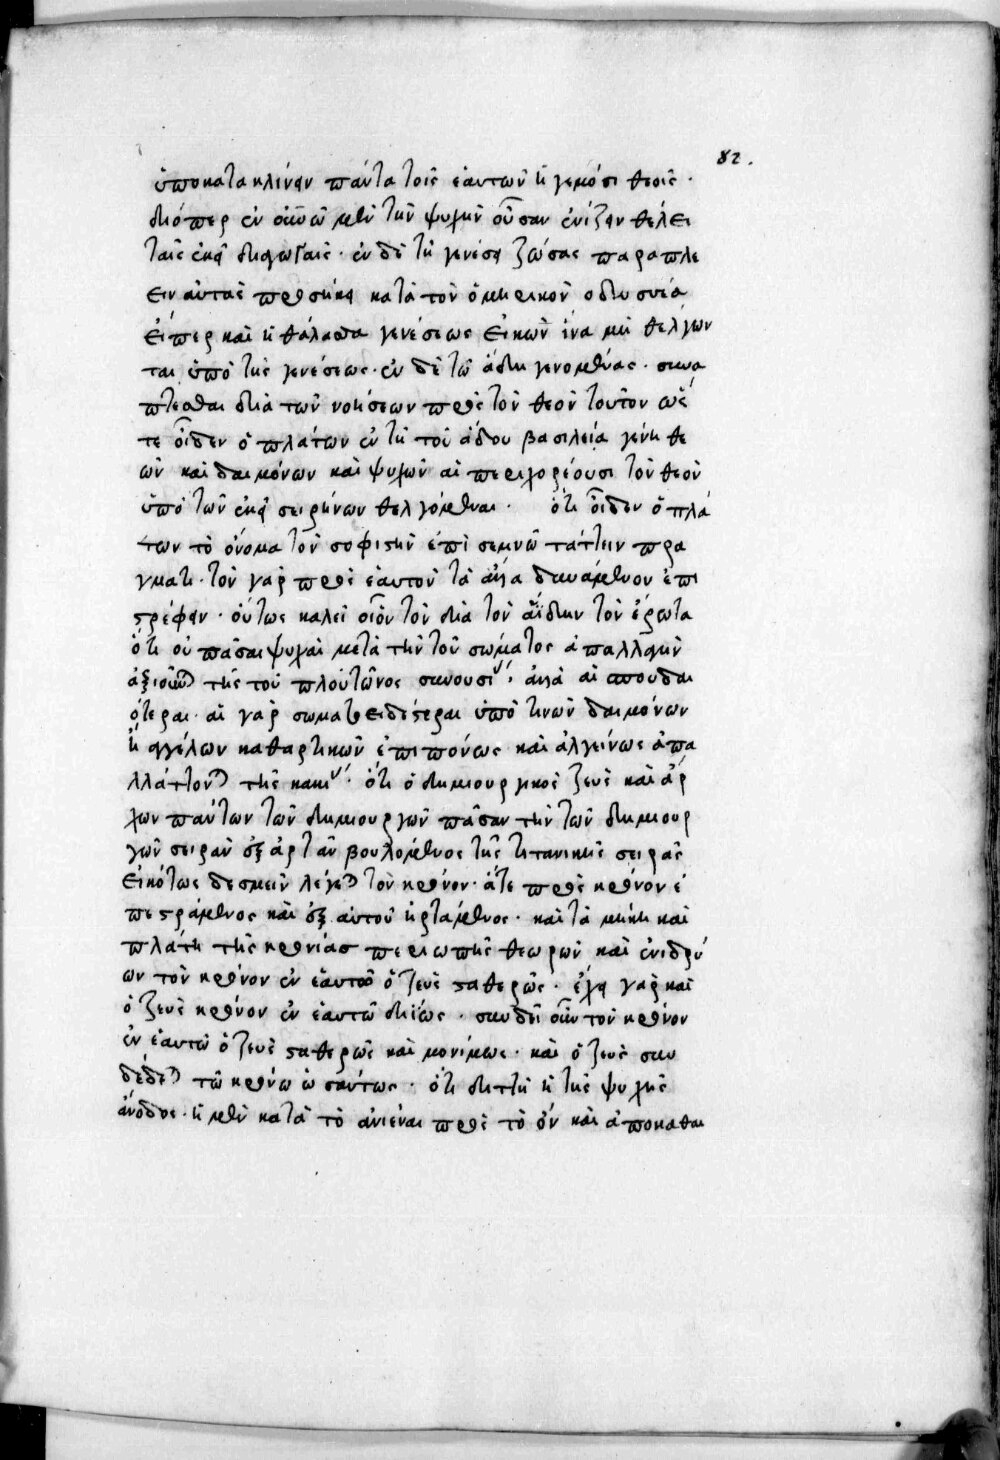 82.
ὑποκατακλίνειν πάντα τοῖς ἑαυτῶν ἡγεμόσι θεοῖς·
διόπερ ἐν οὐνῶ μὲν τὴν ψυχὴν οὖσαν ἐνίζειν θέλει
ταῖς ἐκεῖ διαγωγαῖς· ἐν δὲ τῆ γενέσει ζώσας παραπλέ
ειν αὐτὰς προσήκει κατὰ τὸν ὁμηρικὸν ὀδυσσέα
εἴπερ καὶ ἡ θάλασσα γενέσεως εἰκὼν ἵνα μὴ θέλγων
ται ὑπὸ τῆς γενέσεως· ἐν δὲ τῶ ἅδη γενομένας· συνά
πτεσθαι διὰ τῶν νοήσεων πρὸς τὸν θεὸν τοῦτον ὥς
τε οἶδεν ὁ πλάτων ἐν τῆ τοῦ ἅδου βασιλεία γένη θε
ῶν καὶ δαιμόνων καὶ ψυχῶν αἳ περιχορεύουσι τὸν θεὸν
ὑπὸ τῶν ἐκεῖ σειρήνων θελγόμεναι· ὅτι οἶδεν ὁ πλά
των τὸ ὄνομα τὸν σοφιστὴν ἐπὶ σεμνῶ τάττειν πρά
γματι· τὸν γὰρ πρὸς ἑαυτὸν τὰ ἄλλα δυνάμενον ἐπι
στρέφειν· οὕτως καλεῖ οἷον τὸν δία τὸν ἅϊδην τὸν ἔρωτα
ὅτι οὐ πᾶσαι ψυχαὶ μετὰ τὴν τοῦ σώματος ἀπαλλαγὴν
ἀξιοῦνται τῆς τοῦ πλούτωνος συνουσίας, ἀλλὰ αἱ σπουδαι
ότεραι· αἱ γὰρ σωματοειδέστεραι ὑπό τινῶν δαιμόνων
ἢ ἀγγέλων καθαρτικῶν ἐπιπόνως καὶ ἀλγεινῶς ἀπα
λλάττονται τῆς κακίας· ὅτι ὁ δημιουργικὸς ζεὺς καὶ ἄρ
χων πάντων τῶν δημιουργῶν πᾶσαν τὴν τῶν δημιουρ
γῶν σειρὰν ἐξαρτᾶν βουλόμενος τῆς τιτανικῆς σειρᾶς
εἰκότως δεσμεῖν λέγεται τὸν κρόνον· ἅτε πρὸς κρόνον ἐ
πεστράμενος καὶ ἐξ αὐτοῦ ἠρτάμενος· καὶ τὰ μήκη καὶ
πλάτη τῆς κρονίας περιωπῆς θεωρῶν καὶ ἐνιδρύ
ων τὸν κρόνον ἐν ἑαυτῶ ὁ ζεὺς σταθερῶς· ἔχει γὰρ καὶ
ὁ ζεὺς κρόνον ἐν ἑαυτῶ διΐως· συνδεῖ οὖν τὸν κρόνον
ἐν ἑαυτῶ ὁ ζεὺς σταθερῶς καὶ μονίμως· καὶ ὁ ζεὺς συν
δέδεται τῶ κρόνω ὡσαύτως· ὅτι διττὴ ἡ τῆς ψυχῆς
ἄνοδος· ἡ μὲν κατὰ τὸ ἀνιέναι πρὸς τὸ ὂν καὶ ἀποκαθαι